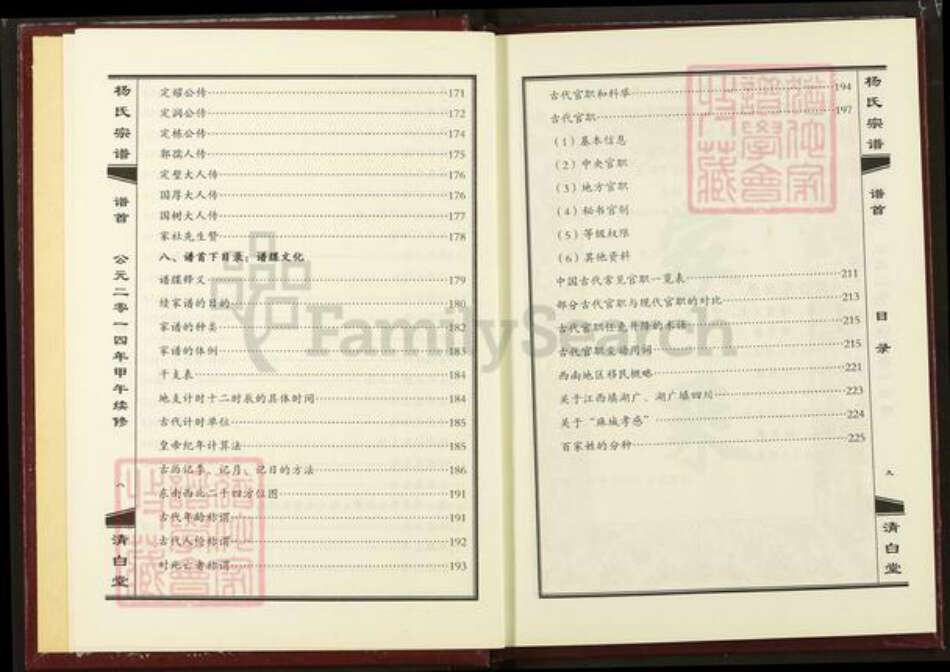 杨氏宗谱
谱首
公元二零一四年甲午续修
八
清白堂
定耀公传 171
定润公传 172
定栋公传 174
郭孺人传 175
定璧大人传 176
国厚大人传 176
国树大人传 177
家社先生赞 178
八、谱首下目录：谱牒文化
谱牒释义 179
续家谱的目的 180
家谱的种类 182
家谱的体例 183
干支表 184
地支计时十二时辰的具体时间 184
古代计时单位 185
皇帝纪年计算法 185
古历记季、记月、记日的方法 186
东南西北二十四方位图 191
古代年龄称谓 191
古代人伦称谓 192
对死亡者称谓 193
古代官职和科举 194
古代官职 197
（1）基本信息
（2）中央官职
（3）地方官职
（4）秘书官制
（5）等级权限
（6）其他资料
中国古代常见官职一览表 211
部分古代官职与现代官职的对比 213
古代官职任免升降的术语 215
古代官职变动用词 215
西南地区移民概略 221
关于江西填湖广、湖广填四川 223
关于“麻城孝感” 224
百家姓的分种 225
杨氏宗谱
谱首
目录
九
清白堂
FamilySearch